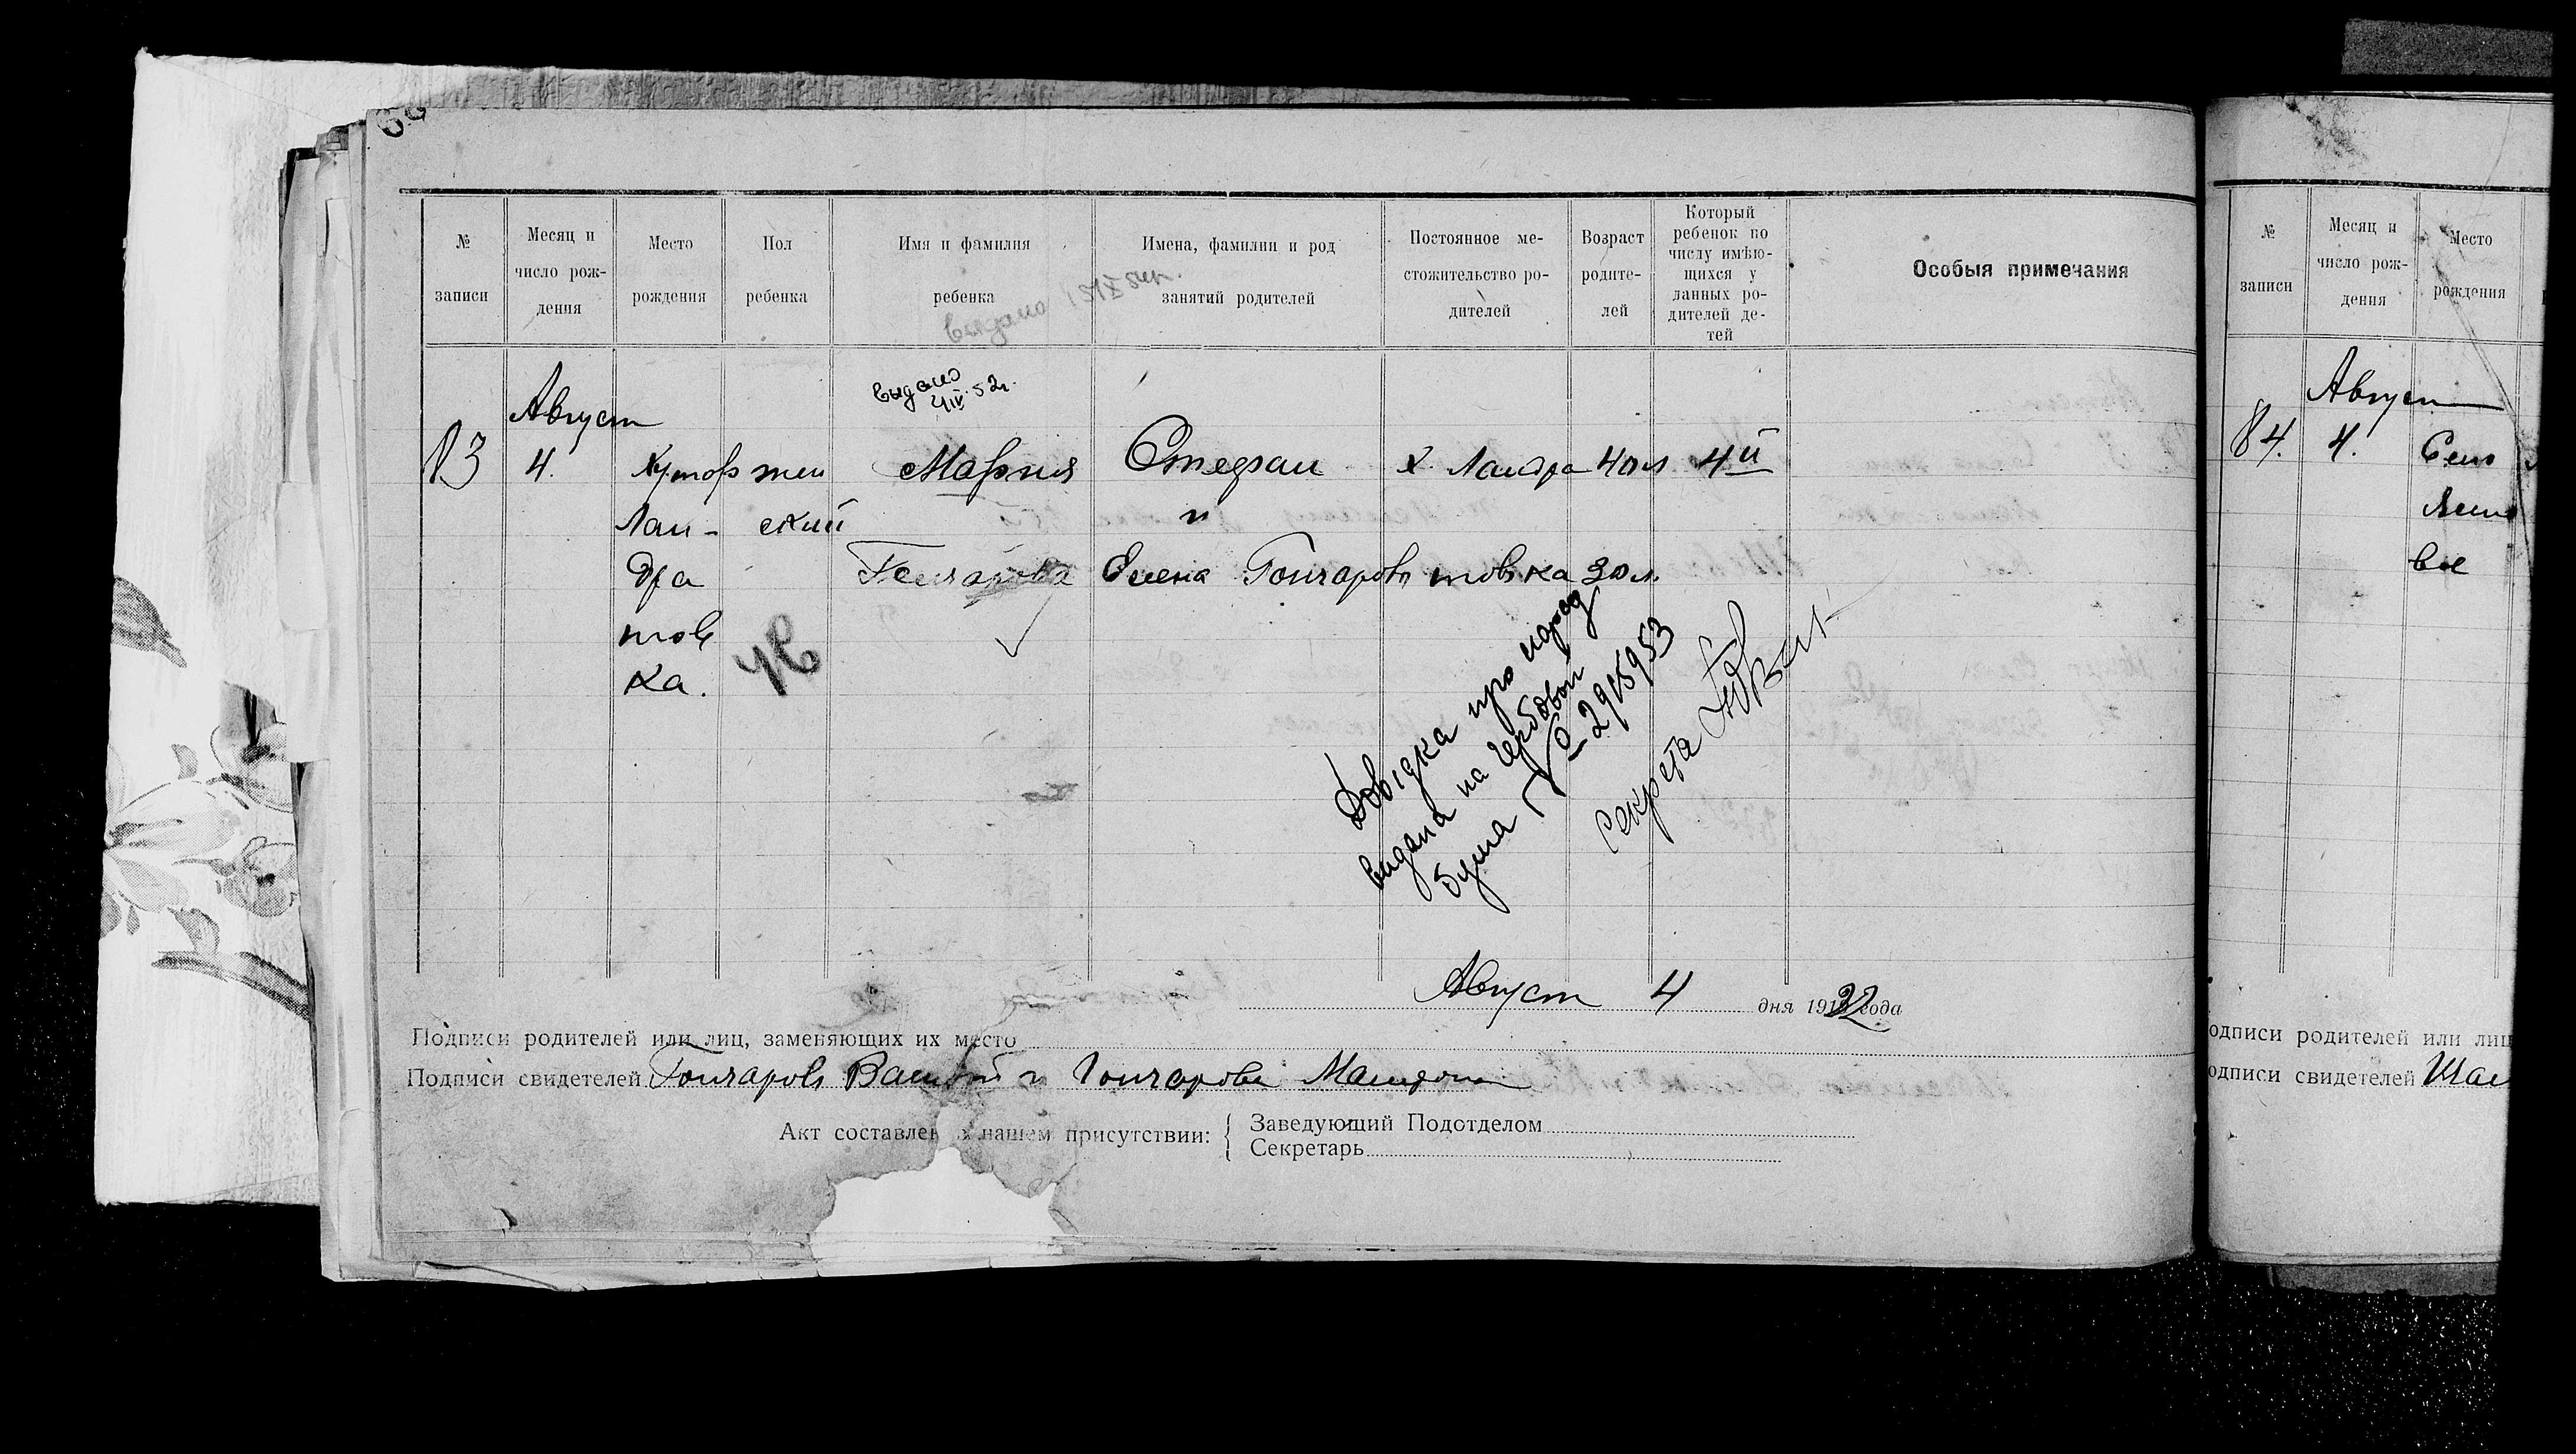 № записи
Месяц и число рождения
Место рождения
Пол ребенка
Имя и фамилия ребенка
Имена, фамилии и род занятий родителей
Постоянное местожительство родителей
Возраст родителей
Который ребенок по числу имѣющихся у данных родителей детей
Особыя примечания
выдано
выдано
4 IV. 52г.
Август
83 4. Хутор жен Мария Стефан х.Ландра 40 л 4й
Лан- ский и
дра Гончарова Елена Гончаровы товка 30 л.
тов
ка.
Довідка про народ
видана на гербовой
бума № 2915953
Секрета
Август 4 дня 1922 года
Подписи родителей или лиц, заменяющих их место
Подписи свидетелей Гончаровъ и Гончарова
Акт составлен в нашем присутствии:
Заведующий Подотделом
Секретарь
№ записи
Месяц и число рождения
Место рождения
Август
84. 4. Село
Ясино
вое
одписи родителей или лиц
одписи свидетелей Шал